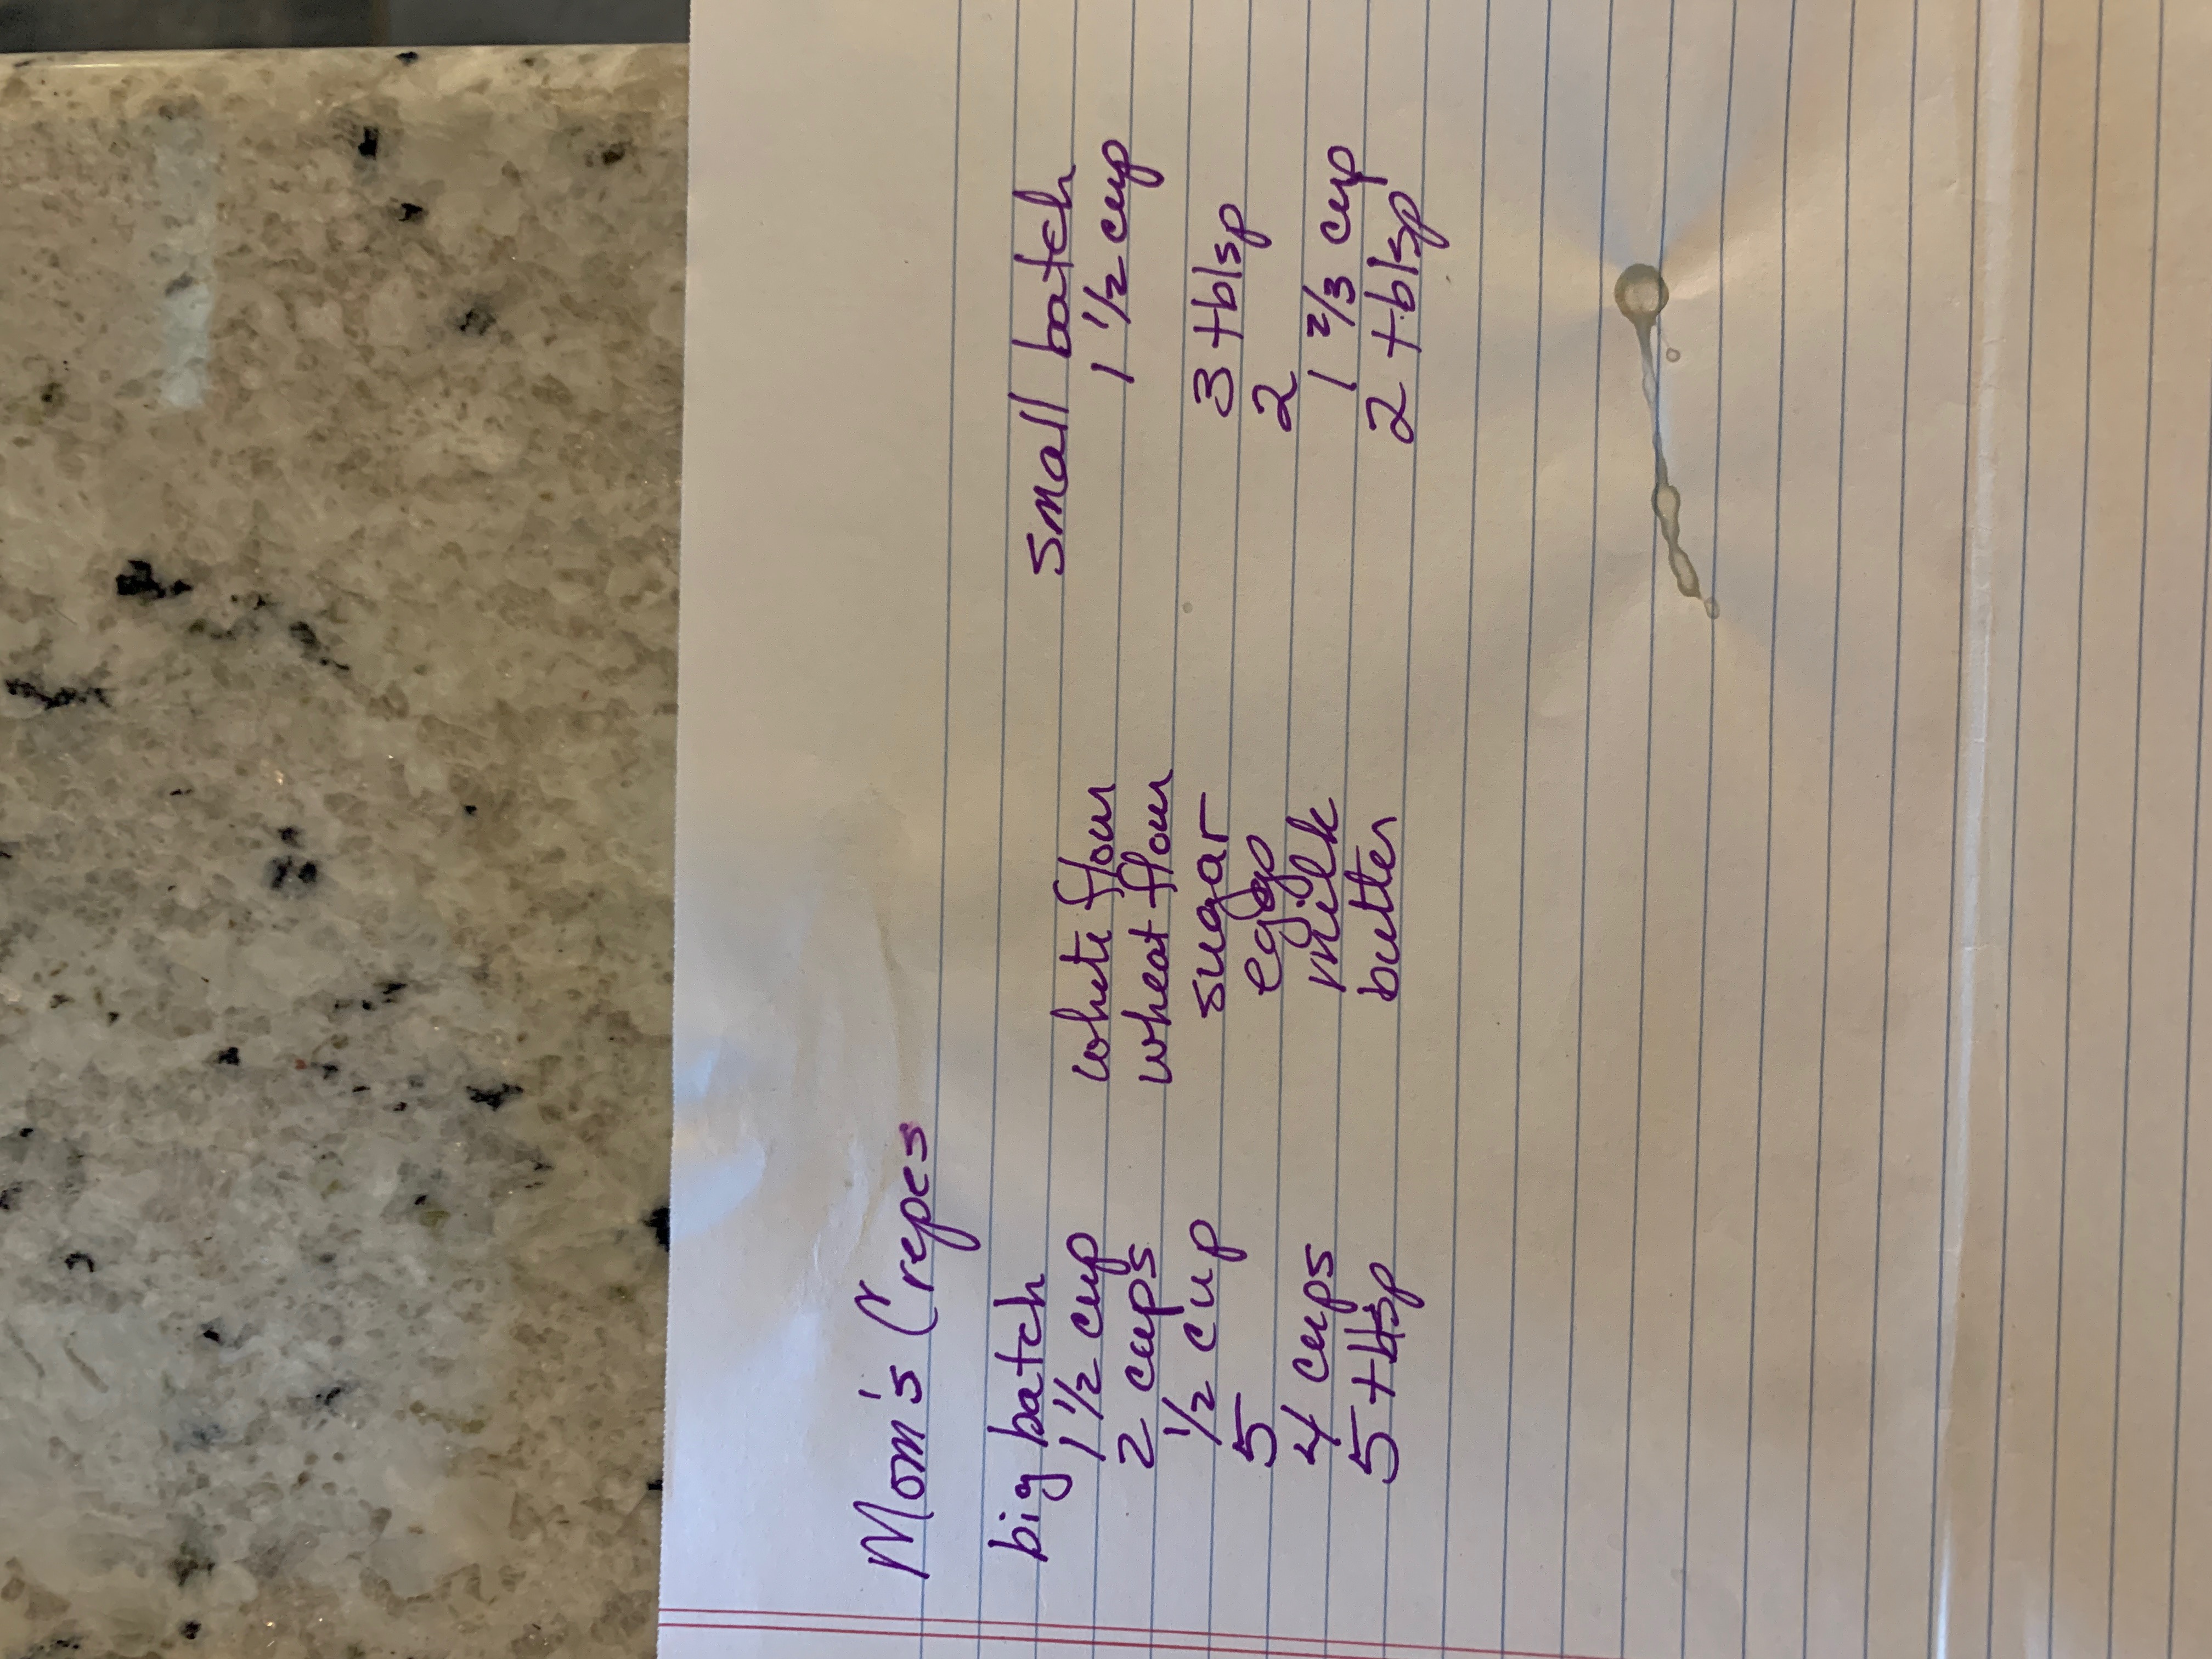 Mom's Crepes
big batch small batch
1 1/2 cup white flour 1 1/2 cup
2 cups wheat flour
1/2 cup sugar 3 tblsp
5 eggs 2
4 cups milk 1 2/3 cup
5 tblsp butter 2 tblsp